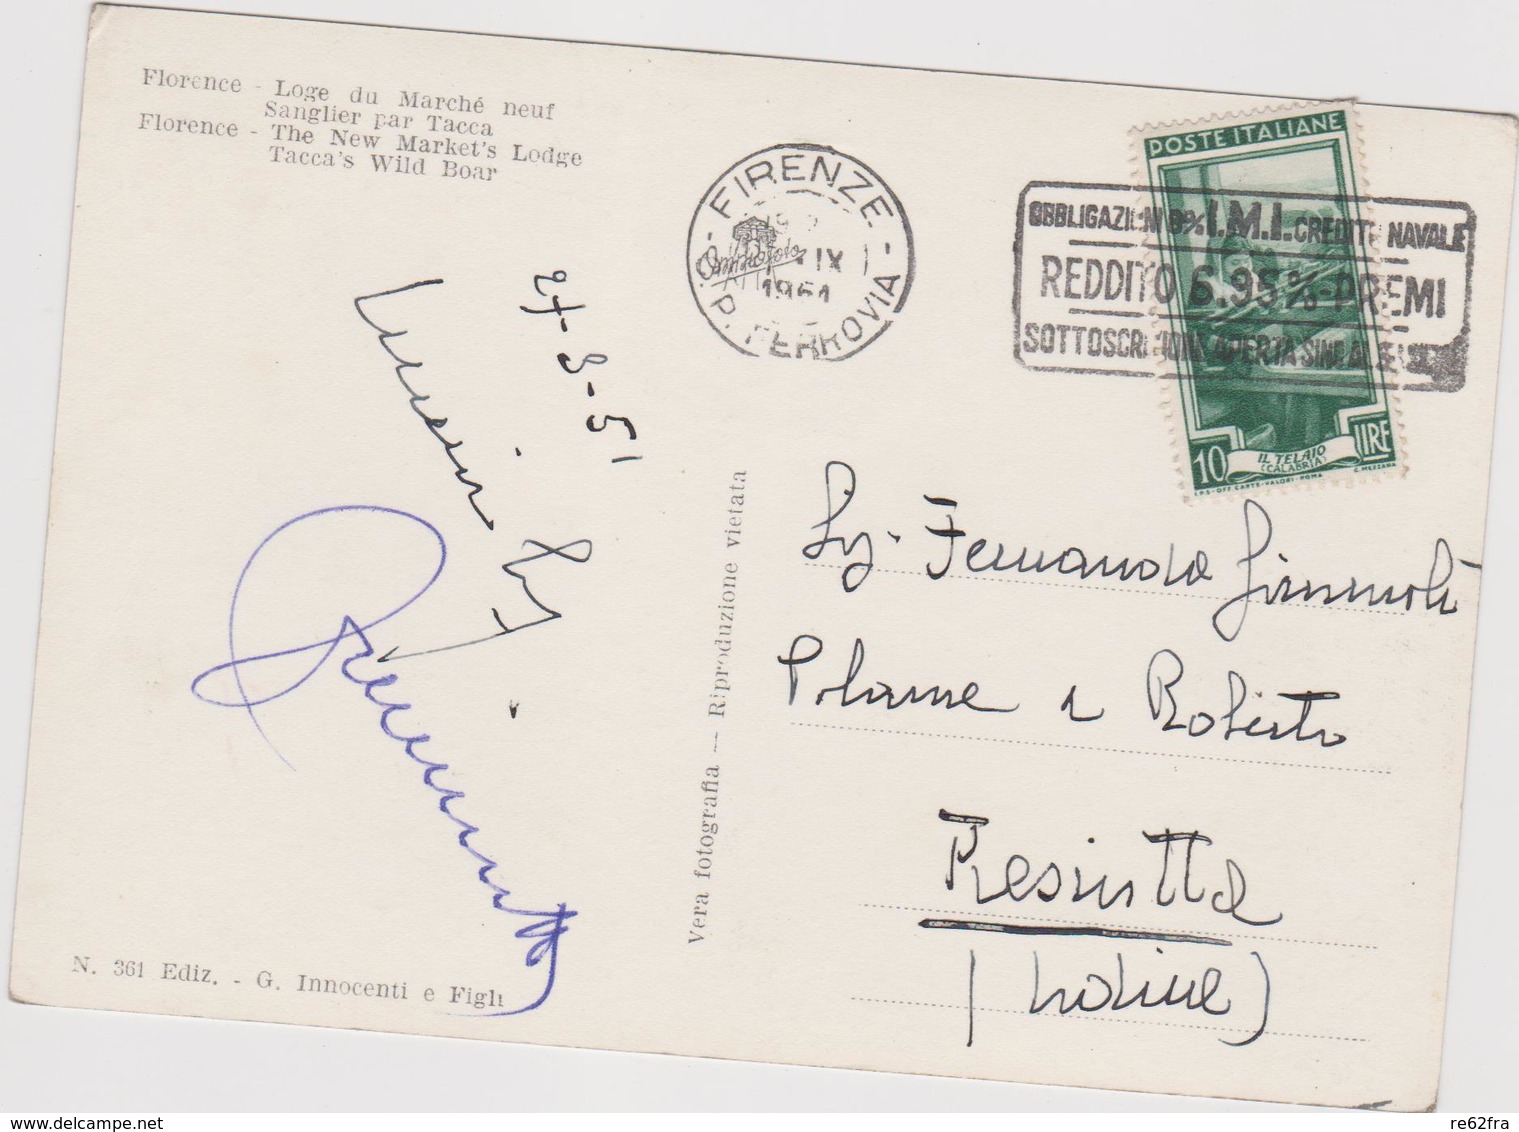 Florence - Loge du Marché neuf
Sanglier par Tacca
Florence - The New Market's Lodge
Tacca's Wild Boar
FIRENZE
IX
1951
P. FERROVIA
OBBLIGAZIONI % I.M.I. CREDITO NAVALE
REDDITO 6.95%-PREMI
SOTTOSCRIZIONE APERTA SINO AL
POSTE ITALIANE
10 LIRE
IL TELAIO
(CALABRIA)
I.P.S-OFF. CARTE-VALORI-ROMA C. MEZZANA
-9-51
Sig. Fernanda
e Roberto
Resiutta
(Udine)
Vera fotografia — Riproduzione vietata
N. 361 Ediz. - G. Innocenti e Figli
re62fra